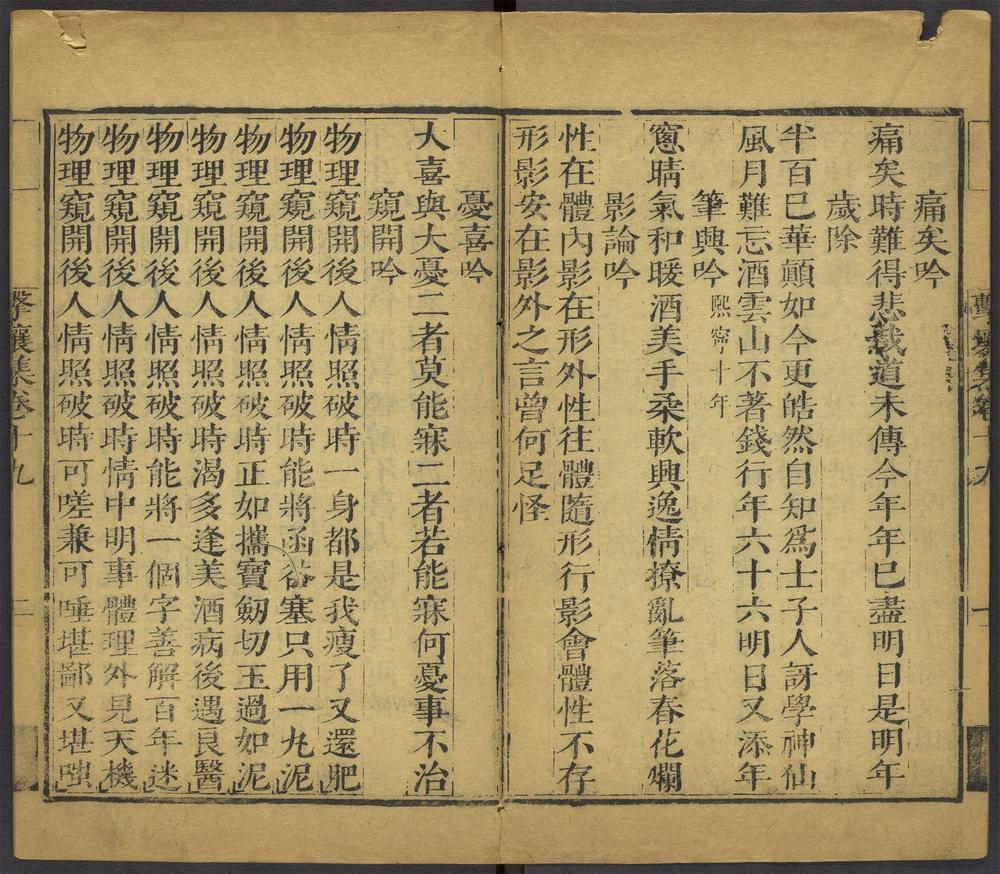 痛矣吟
痛矣時難得悲哉道未傳今年年已盡明日是明年
歲除
半百已華顛如今更皓然自知爲士子人訝學神仙
風月難忘酒雲山不著錢行年六十六明日又添年
筆興吟 熙寧十年
窻晴氣和暖酒美手柔軟興逸情撩亂筆落春花爛
影論吟
性在體內影在形外性往體隨形行影會體性不存
形影安在影外之言曾何足怪
憂喜吟
大喜與大憂二者莫能寐二者若能寐何憂事不治
窺開吟
物理窺開後人情照破時一身都是我瘦了又還肥
物理窺開後人情照破時能將函谷塞只用一九泥
物理窺開後人情照破時正如攜寶劒切玉過如泥
物理窺開後人情照破時渴多逢美酒病後遇良醫
物理窺開後人情照破時能將一個字善解百年迷
物理窺開後人情照破時情中明事體理外見天機
物理窺開後人情照破時可嗟兼可唾堪鄙又堪嗤
擊壤集卷十九
二